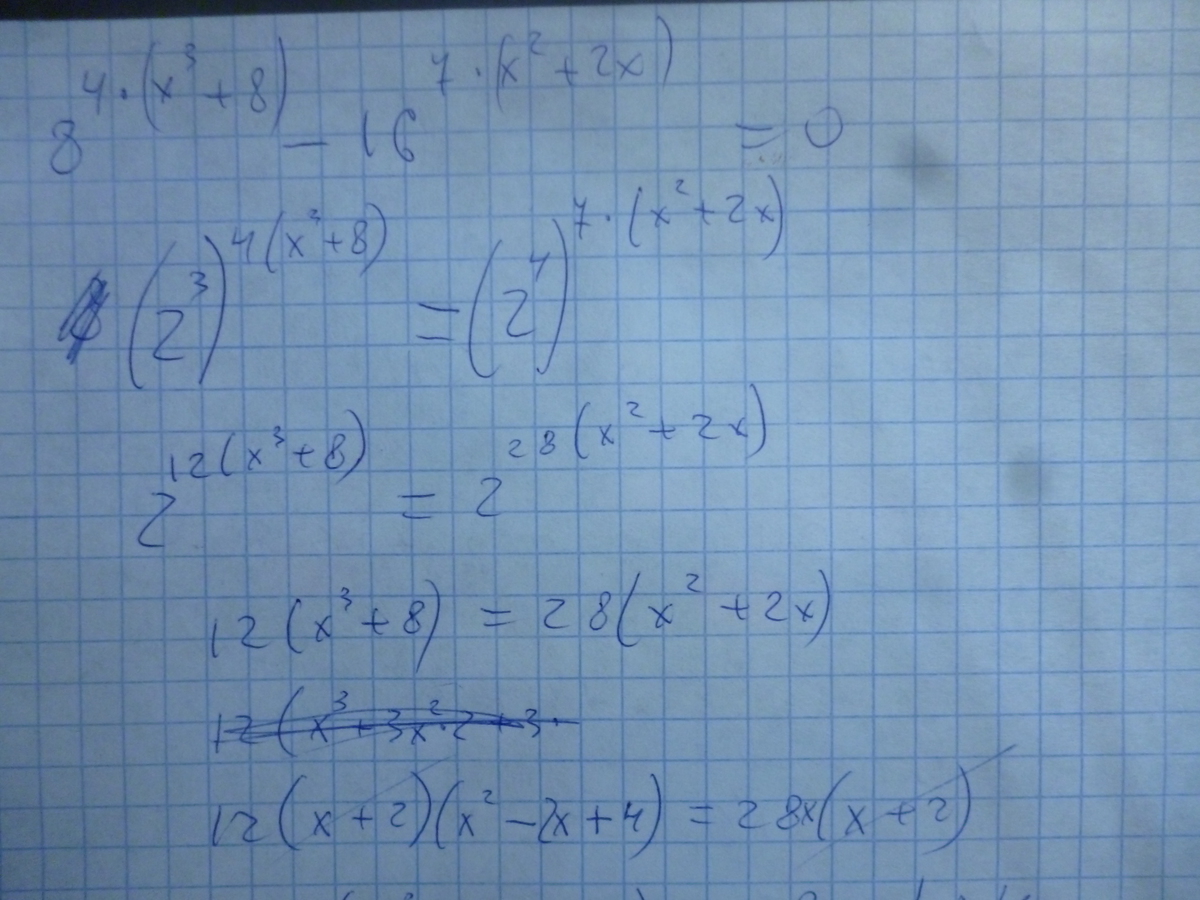 8^{4·(x³+8)} − 16^{7·(x²+2x)} = 0
(2³)^{4(x³+8)} = (2⁴)^{7·(x²+2x)}
2^{12(x³+8)} = 2^{28(x²+2x)}
12(x³+8) = 28(x²+2x)
12(x³+3x²·2+3·
12(x+2)(x²−2x+4) = 28x(x+2)